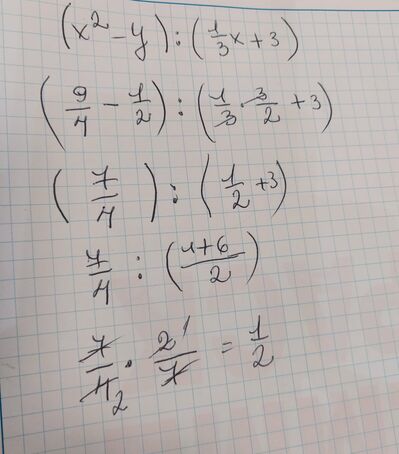 (x² - y) : (1/3 x + 3)
(9/4 - 1/2) : (1/3 · 3/2 + 3)
(7/4) : (1/2 + 3)
7/4 : ((1+6)/2)
7/4 2 · 2 1/7 = 1/2